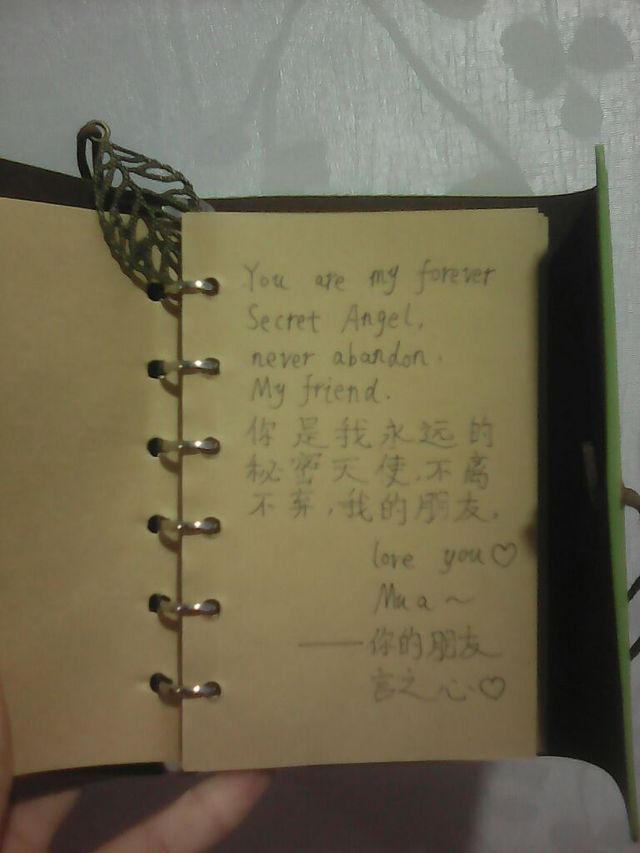 You are my forever
Secret Angel,
never abandon.
My friend.
你是我永远的
秘密天使,不离
不弃,我的朋友.
love you♡
Mua~
——你的朋友
言之心♡